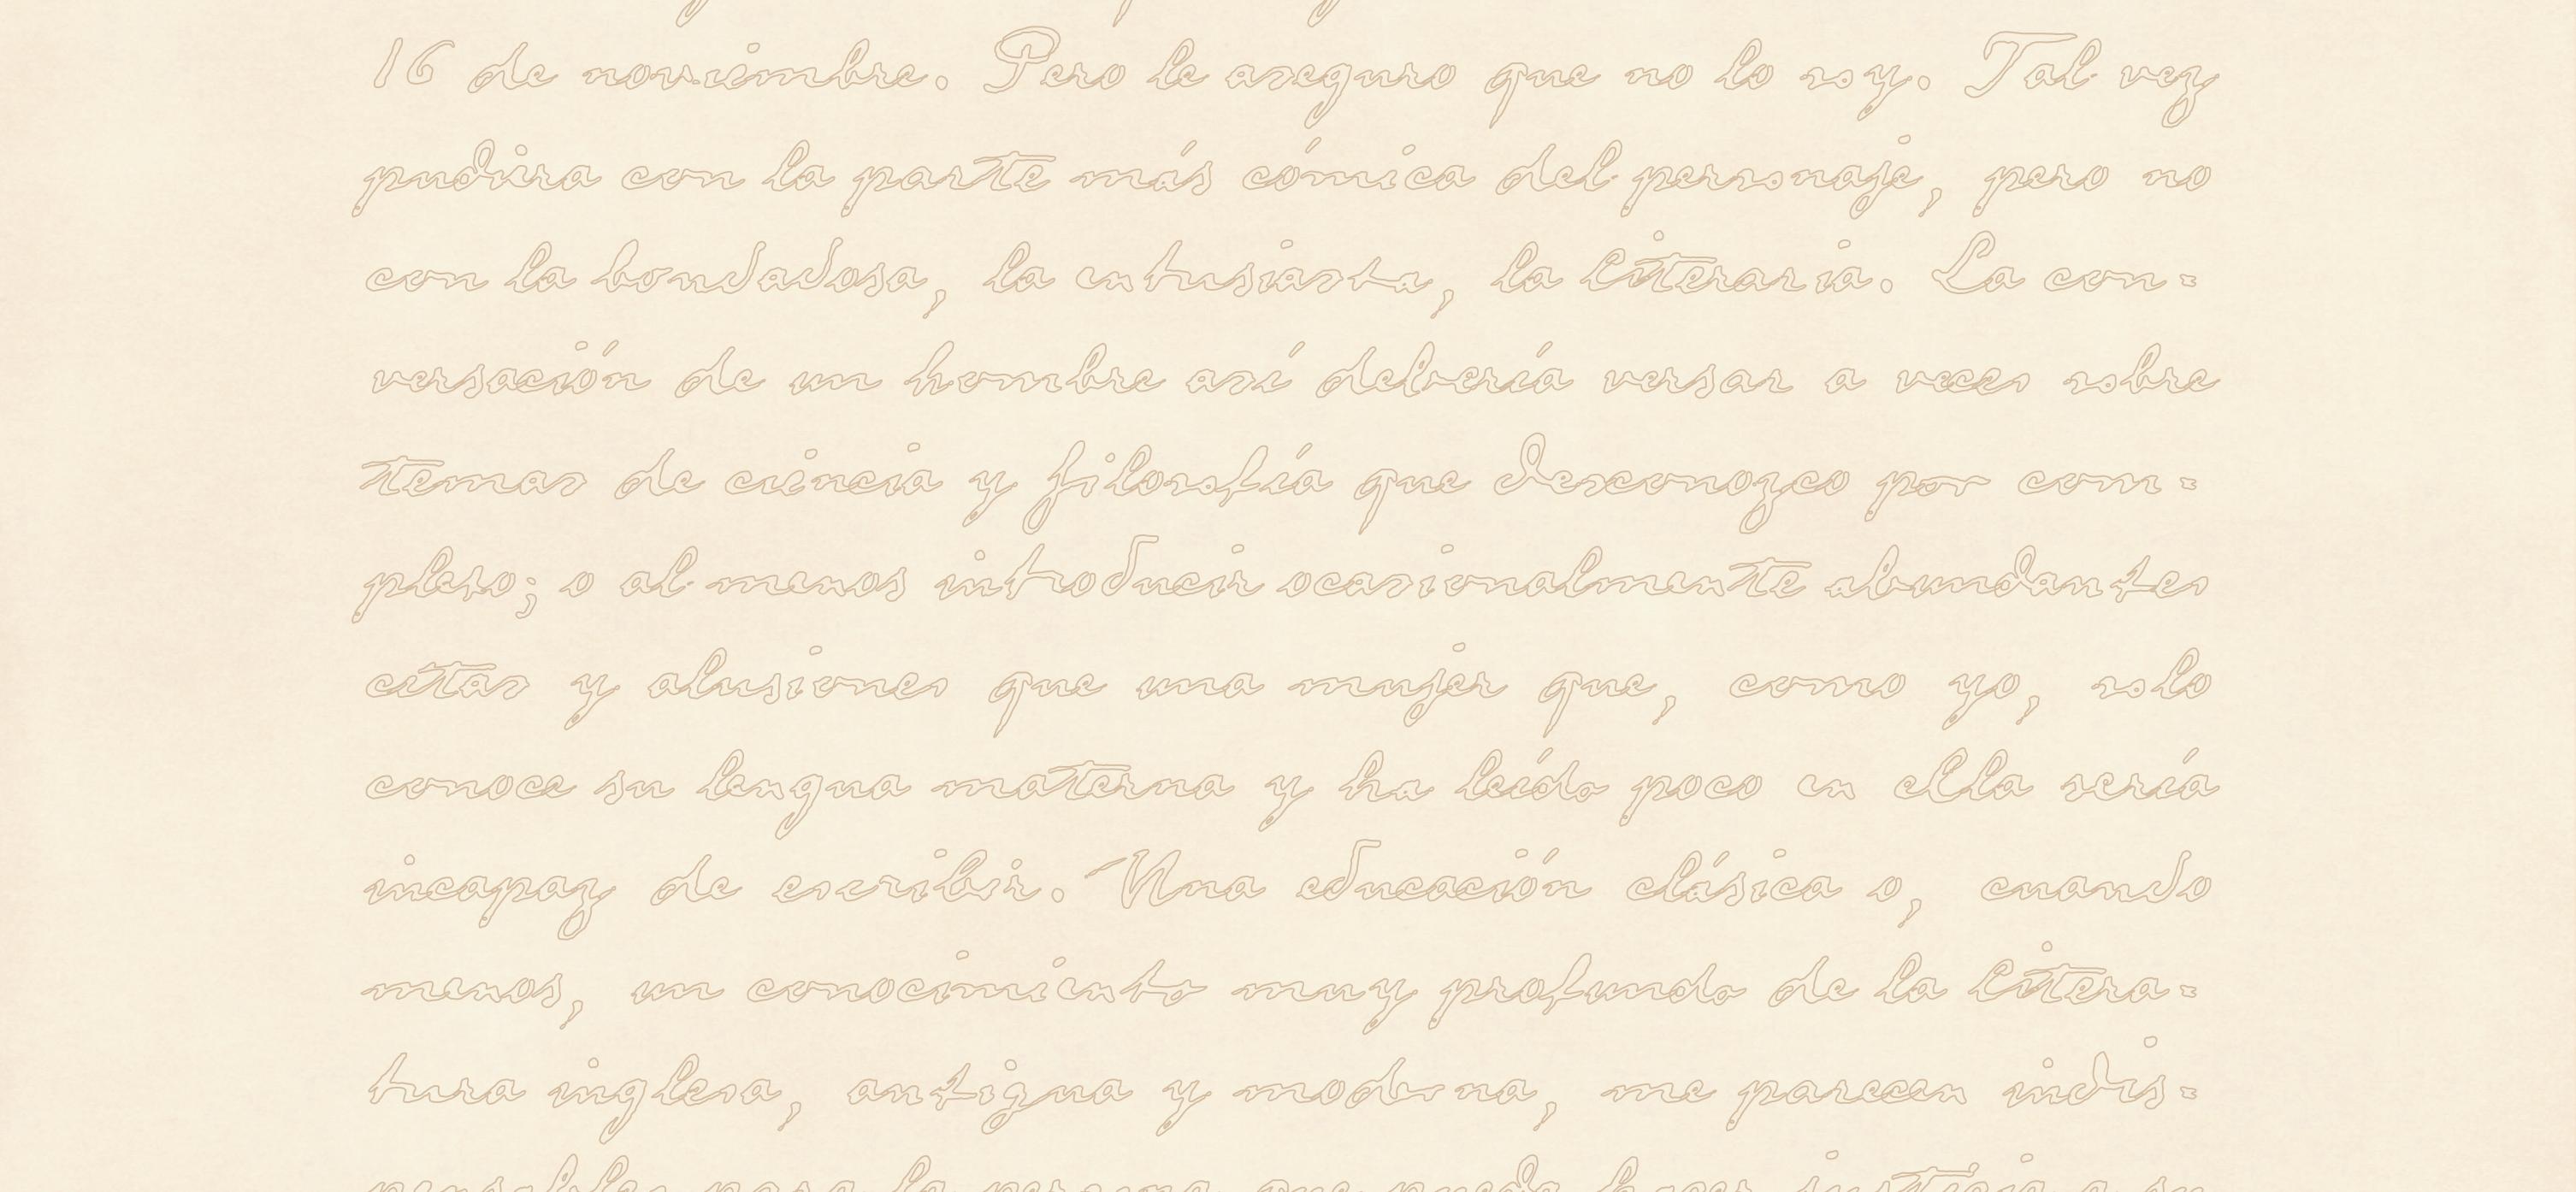 16 de noviembre. Pero le aseguro que no lo soy. Tal vez
pudiera con la parte más cómica del personaje, pero no
con la bondadosa, la entusiasta, la literaria. La con-
versación de un hombre así debería versar a veces sobre
temas de ciencia y filosofía que desconozco por com-
pleto; o al menos introducir ocasionalmente abundantes
citas y alusiones que una mujer que, como yo, solo
conoce su lengua materna y ha leído poco en ella sería
incapaz de escribir. Una educación clásica o, cuando
menos, un conocimiento muy profundo de la litera-
tura inglesa, antigua y moderna, me parecen indis-
pensables para la persona que pueda hacer justicia a su